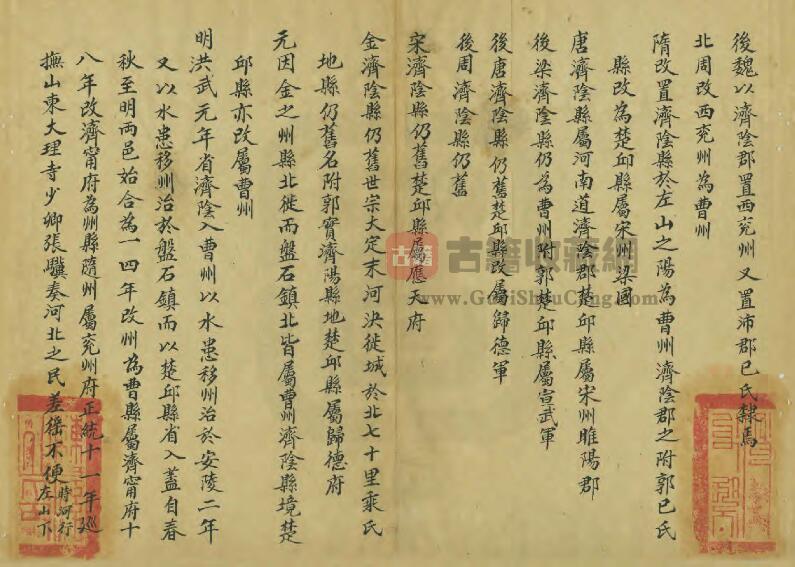 後魏以濟陰郡置西兖州又置沛郡巳氏隸焉
北周改西兖州為曹州
隋改置濟陰縣於左山之陽為曹州濟陰郡之附郭巳氏
縣改為楚邱縣屬宋州梁國
唐濟陰縣屬河南道濟陰郡楚邱縣屬宋州睢陽郡
後梁濟陰縣仍為曹州附郭楚邱縣屬宣武軍
後唐濟陰縣仍舊楚邱縣改屬歸德軍
後周濟陰縣仍舊
宋濟陰縣仍舊楚邱縣屬應天府
金濟陰縣仍舊世宗大定末河決徙城於北七十里乘氏
地縣仍舊名附郭實濟陽縣地楚邱縣屬歸德府
元因金之州縣北徙而盤石鎮北皆屬曹州濟陰縣境楚
邱縣亦改屬曹州
明洪武元年省濟陰入曹州以水患移州治於安陵二年
又以水患移州治於盤石鎮而以楚邱縣省入蓋自春
秋至明兩邑始合為一四年改州為曹縣屬濟甯府十
八年改濟甯府為州縣隨州屬兖州府正統十一年廵
撫山東大理寺少卿張驥奏河北之民差徭不便時河行左山下
古籍 古籍收藏網
www.GujiShouCang.com